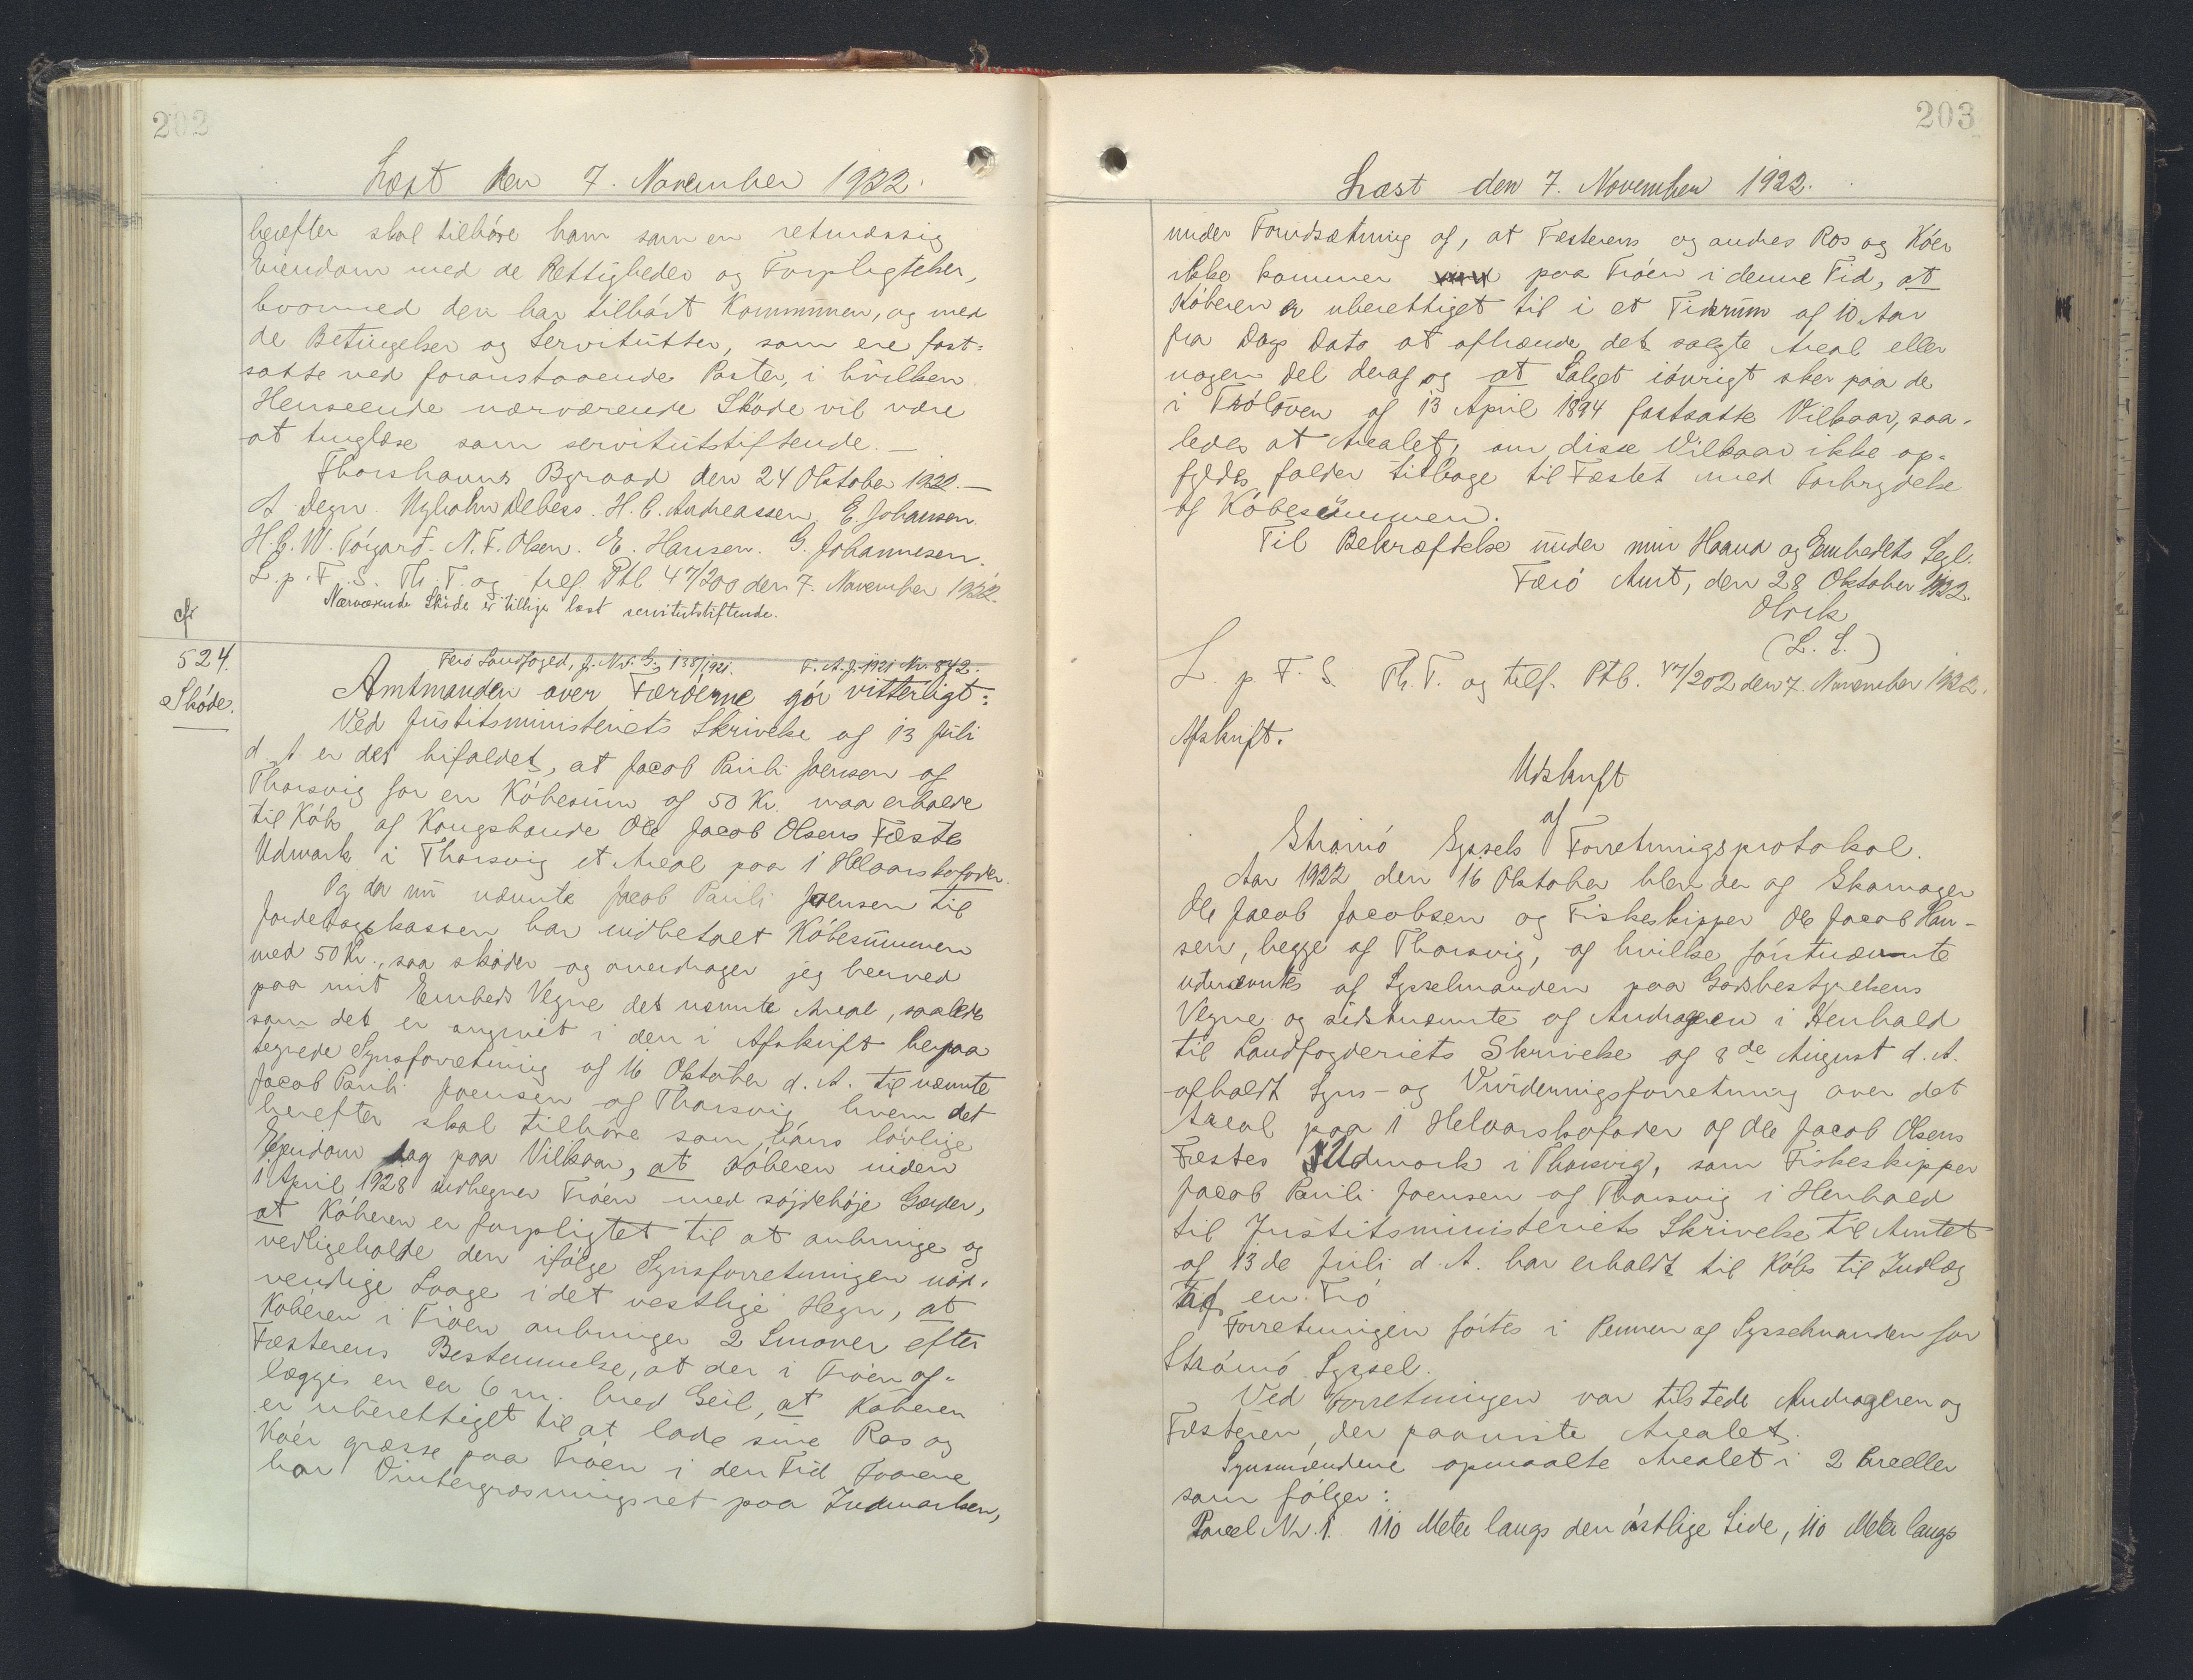 202
Læst den 7. November 1922.
herefter skal tilhøre ham som en retmæssig
Eiendom med de Rettigheder og Forpligtelser,
hvormed den har tilhørt Kommunen, og med
de Betingelser og Servitutter, som ere fast-
satte ved foranstaaende Poster, i hvilken
Henseende nærværende Skøde vil være
at tinglæse som servitutstiftende. —
Thorshavns Byraad den 24 Oktober 1922. —
A Degn. Nyholm Debess. H. C. Andreassen E. Johansen.
H. C. W. Tórgarð. N. F. Olsen. E. Hansen. G. Johannesen.
L. p. F. S. Th. T. og tilf. Ptl. 47/200 den 7. November 1922.
Nærværende Skøde er tillige læst servitutstiftende.
cfr
524.
Skøde.
Færø Landfoged, J. Nr. G. 138/1921. F. A. J. 1921 Nr. 842.
Amtmanden over Færøerne gør vitterligt:
Ved Justitsministeriets Skrivelse af 13 Juli
d. A. er det bifaldet, at Jacob Pauli Joensen af
Thorsvig for en Købesum af 50 Kr. maa erholde
til Købs af Kongsbonde Ole Jacob Olsens Fæste
Udmark i Thorsvig et Areal paa 1 Helaarskofoder.
Og da nu nævnte Jacob Pauli Joensen til
Jordebogskassen har indbetalt Købesummen
med 50 Kr., saa skøder og overdrager jeg herved
paa mit Embeds Vegne det nævnte Areal, saaledes
som det er angivet i den i Afskrift herpaa
tegnede Synsforretning af 16 Oktober d. A. til nævnte
Jacob Pauli Joensen af Thorsvig hvem det
herefter skal tilhøre som hans lovlige
Ejendom dog paa Vilkaar, at Køberen inden
1 April 1928 indhegner Trøen med søjdehøje Gærder,
at Køberen er forpligtet til at anbringe og
vedligeholde den ifølge Synsforretningen nød-
vendige Laage i det vestlige Hegn, at
Køberen i Trøen anbringer 2 Smoger efter
Fæsterens Bestemmelse, at der i Trøen af-
lægges en ca 6 m. bred Geil, at Køberen
er uberettiget til at lade sine Ros og
Køer græsse paa Trøen i den Tid Faarene
har Vintergræsningsret paa Indmarken,
203
Læst den 7. November 1922.
under Forudsætning af, at Fæsterens og andres Ros og Køer
ikke kommer ind paa Trøen i denne Tid, at
Køberen er uberettiget til i et Tidsrum af 10 Aar
fra Dags Dato at afhænde det solgte Areal eller
nogen Del deraf og at Salget iøvrigt sker paa de
i Trøloven af 13 April 1894 fastsatte Vilkaar, saa-
ledes at Arealet, om disse Vilkaar ikke op-
fyldes, falder tilbage til Fæstet med Forbrydelse
af Købesummen.
Til Bekræftelse under min Haand og Embedets Segl.
Færø Amt, den 28 Oktober 1922.
Olrik
(L. S.)
L. p. F. S. Th. T. og tilf. Ptb. 47/202 den 7. November 1922.
Afskrift.
Udskrift
af
Strømø Syssels Forretningsprotokol.
Aar 1922 den 16 Oktober blev der af Skomager
Ole Jacob Jacobsen og Fiskeskipper Ole Jacob Han-
sen, begge af Thorsvig, af hvilke førstnævnte
udnævntes af Sysselmanden paa Godsbestyrelsens
Vegne og sidstnævnte af Andrageren i Henhold
til Landfogderiets Skrivelse af 8de August d. A.
afholdt Syns- og Vurderingsforretning over det
Areal paa 1 Helaarskofoder af Ole Jacob Olsens
Fæstes Udmark i Thorsvig, som Fiskeskipper
Jacob Pauli Joensen af Thorsvig i Henhold
til Justitsministeriets Skrivelse til Amtet
af 13de Juli d. A. har erholdt til Købs til Indlæg
af en Trø
Forretningen førtes i Pennen af Sysselmanden for
Strømø Syssel.
Ved Forretningen var tilstede Andrageren og
Fæsteren, der paaviste Arealet.
Synsmændene opmaalte Arealet i 2 Parceller
som følger:
Parcel Nr. 1. 110 Meter langs den østlige Side, 110 Meter langs